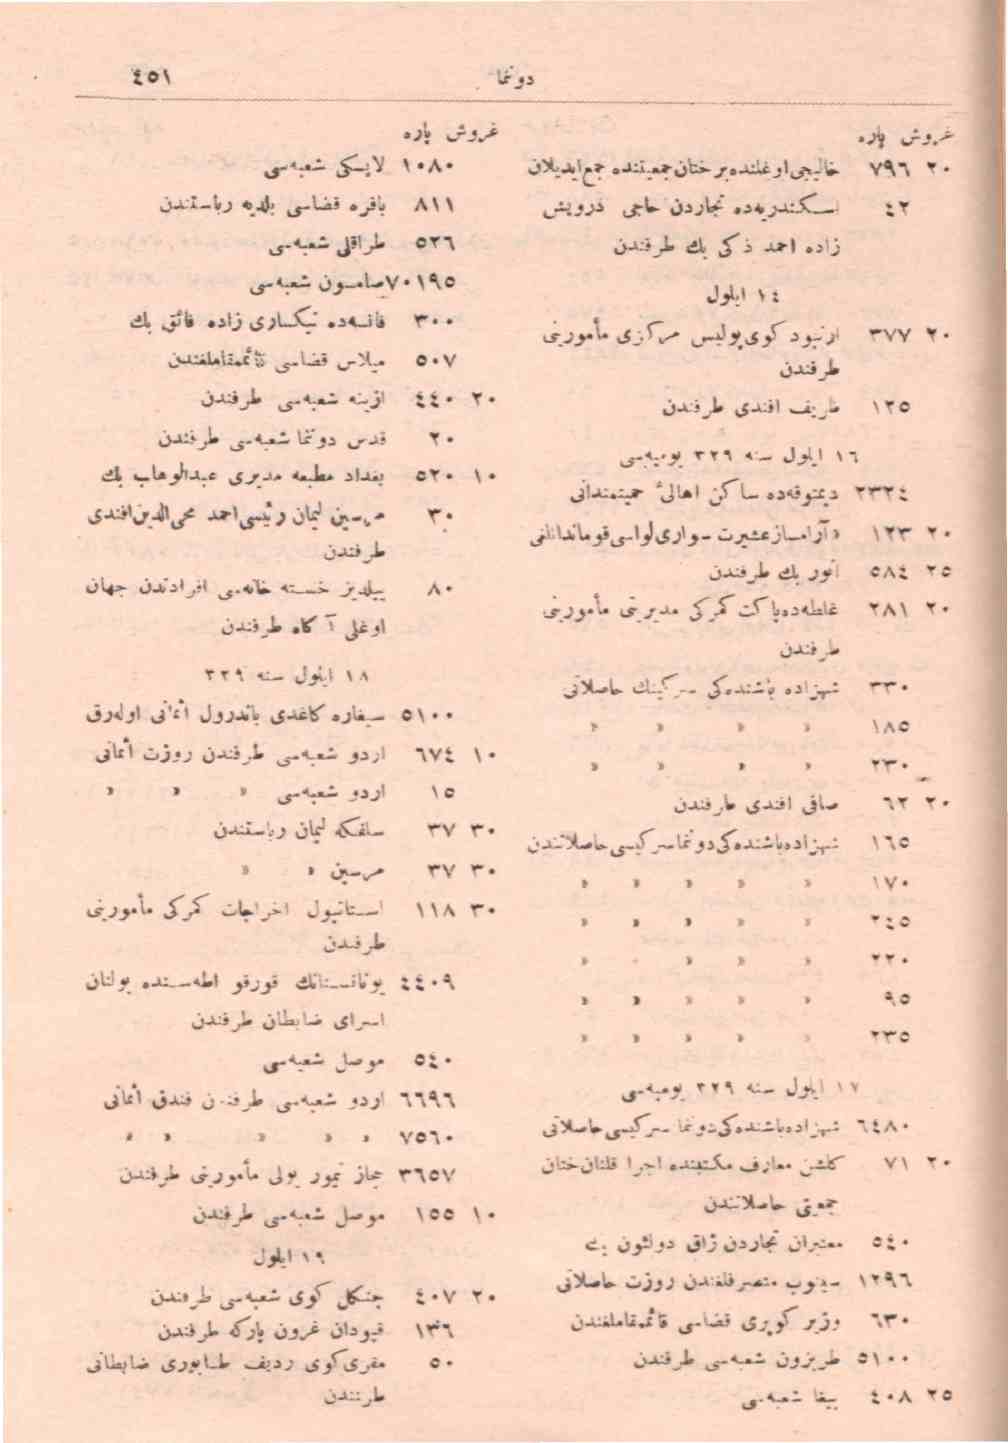 دوننما
٤٥١
غروش پاره
٢٠ ٧٩٦ خالیجی اوغلنده برختان جمعیتنده جمع ایدیلان
٤٢ اسکندریه‌ده تجاردن حاجی درویش
زاده احمد ذکی بك طرفندن
١٤ ایلول
٢٠ ٣٧٧ ارنبود کوی پولیس مرکزی مأمورینی
طرفندن
١٢٥ ظریف افندی طرفندن
١٦ ایلول سنه ٣٢٩ یومیه‌سی
٢٣٢٤ دیمتوقه‌ده ساکن اهالئ حمیتمندانی
٢٠ ١٢٣ عشیرت سواری لواسی قوماندانلغی
٢٥ ٥٨٤ انور بك طرفندن
٢٠ ٢٨١ غلطه‌ده پاکت کمرکی مدیریتی مأمورینی
طرفندن
٣٣٠ شهزاده باشنده‌کی سرکینك حاصلاتی
١٨٥ » » » »
٢٣٠ » » » »
٢٠ ٦٢ صافی افندی طرفندن
١٦٥ شهزاده باشنده‌کی دوننما سرکیسی حاصلاتندن
١٧٠ » » » » »
٢٤٥ » » » » »
٢٢٠ » » » » »
٩٥ » » » » »
٢٣٥ » » » » »
١٧ ایلول سنه ٣٢٩ یومیه‌سی
٦٤٨٠ شهزاده باشنده‌کی دوننما سرکیسی حاصلاتی
٢٠ ٧١ کلشن معارف مکتبنده اجرا قلنان ختان
جمعیتی حاصلاتندن
٥٤٠ معتبران تجاردن ژاق دولئون بك
١٢٩٦ سینوب متصرفلغندن روزت حاصلاتی
٦٣٠ وزیر کوپری قضاسی قائممقاملغندن
٥١٠٠ طربزون شعبه‌سی طرفندن
٢٥ ٤٠٨ بیغا شعبه‌سی
غروش پاره
١٠٨٠ لاپسکی شعبه‌سی
٨١١ بافره قضاسی بلدیه ریاستندن
٥٢٦ طراقلی شعبه‌سی
٧٠١٩٥ صامسون شعبه‌سی
٣٠٠ فاتسه‌ده نیکساری زاده فائق بك
٥٠٧ میلاس قضاسی قائممقاملغندن
٢٠ ٤٤٠ ازینه شعبه‌سی طرفندن
٢٠ قدس دوننما شعبه‌سی طرفندن
١٠ ٥٢٠ بغداد مطبعه مدیری عبدالوهاب بك
٣٠ مرسین لیمان رئیسی احمد محی‌الدین افندی
طرفندن
٨٠ ییلدیز خسته خانه‌سی افرادندن جهان
اوغلی آکاه طرفندن
١٨ ایلول سنه ٣٢٩
٥١٠٠ سیغاره کاغدی باندرول اثمانی اوله‌رق
١٠ ٦٧٤ اردو شعبه‌سی طرفندن روزت اثمانی
١٥ اردو شعبه‌سی » » »
٣٠ ٣٧ سلفکه لیمان ریاستندن
٣٠ ٣٧ مرسین » »
٣٠ ١١٨ استانبول اخراجات کمرکی مأمورینی
طرفندن
٤٤٠٩ یونانستانك قورفو اطه‌سنده بولنان
اسرای ضابطان طرفندن
٥٤٠ موصل شعبه‌سی
٦٦٩٦ اردو شعبه‌سی طرفندن فندق اثمانی
٧٥٦٠ » » » » »
٣٦٥٧ حجاز تیمور یولی مأمورینی طرفندن
١٠ ١٥٥ موصل شعبه‌سی طرفندن
١٩ ایلول
٢٠ ٤٠٧ چنکل کوی شعبه‌سی طرفندن
١٣٦ قپودان غرون پارکه طرفندن
٥٠ مقری کوی ردیف طابوری ضابطانی
طرفندن